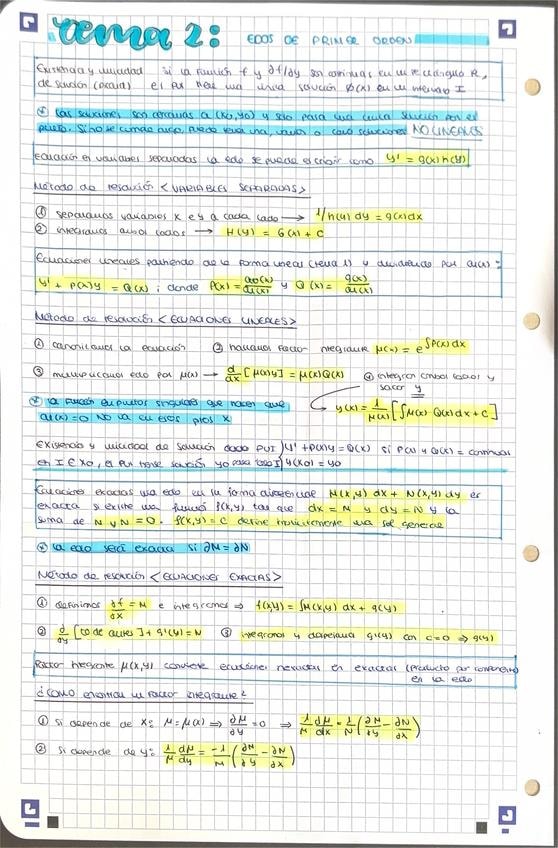 tema 2: EDOS DE PRIMER ORDEN
Existencia y unicidad si la función f y ∂f/∂y son continuas en un rectángulo R,
de solución (Picard) el PVI tiene una única solución φ(x) en un intervalo I
* Las soluciones son cercanas a (x0,y0) y solo pasa una única solución por el
punto. Si no se cumple algo, puede tener una, varias o cero soluciones NO LINEALES
Ecuación en variables separadas la edo se puede escribir como y' = g(x) h(y)
Método de resolución < VARIABLES SEPARADAS >
① separamos variables x e y a cada lado → 1/h(y) dy = g(x)dx
② integramos ambos lados → H(y) = G(x) + C
Ecuaciones lineales partiendo de la forma lineal (tema 1) y dividiendo por a1(x):
y' + P(x)y = Q(x) ; donde P(x) = a0(x)/a1(x) y Q(x) = g(x)/a1(x)
Método de resolución < ECUACIONES LINEALES >
① canonizamos la ecuación ② hallamos factor integrante μ(x) = e^∫P(x)dx
③ multiplicamos edo por μ(x) → d/dx [μ(x)y] = μ(x)Q(x) ④ integrar ambos lados y
sacar y
* La función en puntos singulares que hacen que
a1(x)=0 NO va en esos ptos x
y(x) = 1/μ(x) [∫μ(x) Q(x)dx + C]
Existencia y unicidad de solución dado PVI } y' + P(x)y = Q(x) si P(x) y Q(x) = continuas
en I ∈ x0, el PVI tiene solución y(x0) = y0
Ecuaciones exactas una edo en su forma diferencial M(x,y) dx + N(x,y) dy es
exacta si existe una función f(x,y) tas que dx = M y dy = N y la
suma de M y N = 0. f(x,y) = C define implícitamente una sol general
* La edo será exacta si ∂M = ∂N
Método de resolución < ECUACIONES EXACTAS >
① definimos ∂f/∂x = M e integramos ⇒ f(x,y) = ∫M(x,y) dx + g(y)
② ∂/∂y [lo de antes] + g'(y) = N ③ integramos y despejamos g'(y) con c=0 ⇒ g(y)
Factor integrante μ(x,y) convierte ecuaciones inexactas en exactas (producto por
en la edo
¿Cómo encontrar un factor integrante?
① Si depende de x: μ = μ(x) ⇒ ∂μ/∂y = 0 ⇒ 1/μ dμ/dx = 1/N (∂M/∂y − ∂N/∂x)
② Si depende de y: 1/μ dμ/dy = −1/M (∂M/∂y − ∂N/∂x)